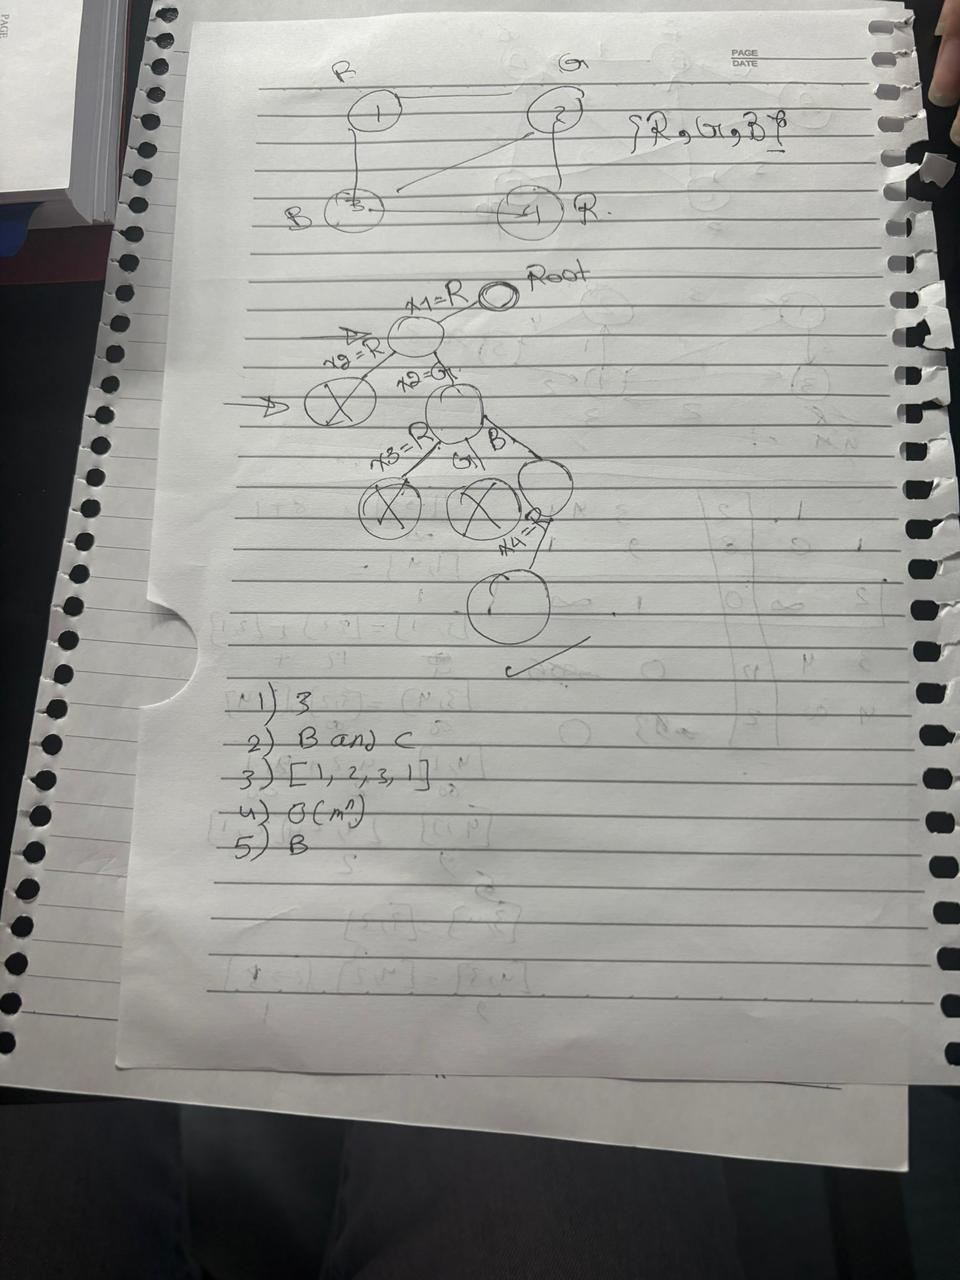 PAGE
DATE
R G
1 2 {R, G, B}
B 3 4 R.
x1=R Root
x2=R x2=G
x3=R G B
x4=R
1) 3
2) B and C
3) [1, 2, 3, 1]
4) O(mⁿ)
5) B